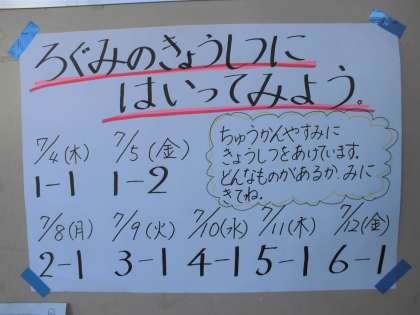 ろぐみのきょうしつに
はいってみよう。
7/4(木) 7/5(金)
1-1 1-2
ちゅうかんやすみに
きょうしつをあけています。
どんなものがあるか、みに
きてね。
7/8(月) 7/9(火) 7/10(水) 7/11(木) 7/12(金)
2-1 3-1 4-1 5-1 6-1